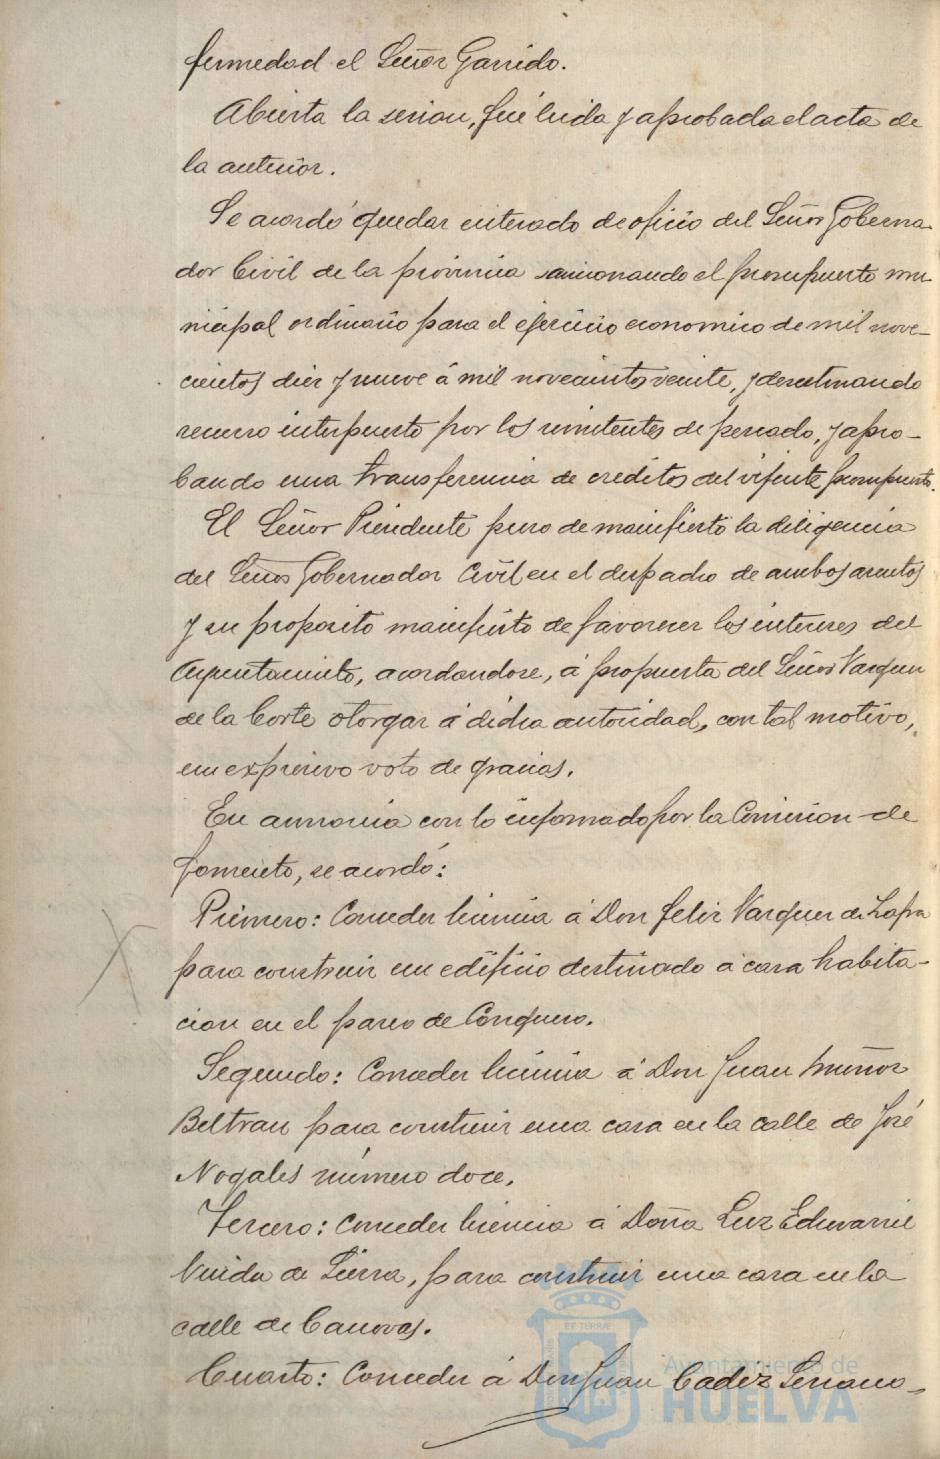 fermedad el Señor Garrido.
Abierta la sesion, fué leida y aprobada el acta de
la anterior.
Se acordó quedar enterado de oficio del Señor Goberna-
dor Civil de la provincia sancionando el presupuesto mu-
nicipal ordinario para el ejercicio economico de mil nove-
cientos diez y nueve á mil novecientos veinte, y desestimando
recurso interpuesto por los remitentes de pescado, y apro-
bando una transferencia de créditos del vijente presupuesto.
El Señor Presidente puso de manifiesto la diligencia
del Señor Gobernador Civil en el despacho de ambos asuntos
y su proposito manifiesto de favorecer los intereses del
Ayuntamiento, acordandose, á propuesta del Señor Vazquez
de la Corte otorgar á dicha autoridad, con tal motivo,
un expresivo voto de gracias.
En armonia con lo informado por la Comision de
fomento, se acordó:
Primero: Conceder licencia á Don Felix Vazquez de Zafra
para construir un edificio destinado á casa habita-
cion en el paseo de Conquero.
Segundo: Conceder licencia á Don Juan Muñoz
Beltran para construir una casa en la calle de José
Nogales número doce.
Tercero: Conceder licencia á Doña Luz Echevarrie
Viuda de Sierra, para construir una casa en la
calle de Canovas.
Cuarto: Conceder á Don Juan Cadiz Serrano-
Ayuntamiento de
HUELVA